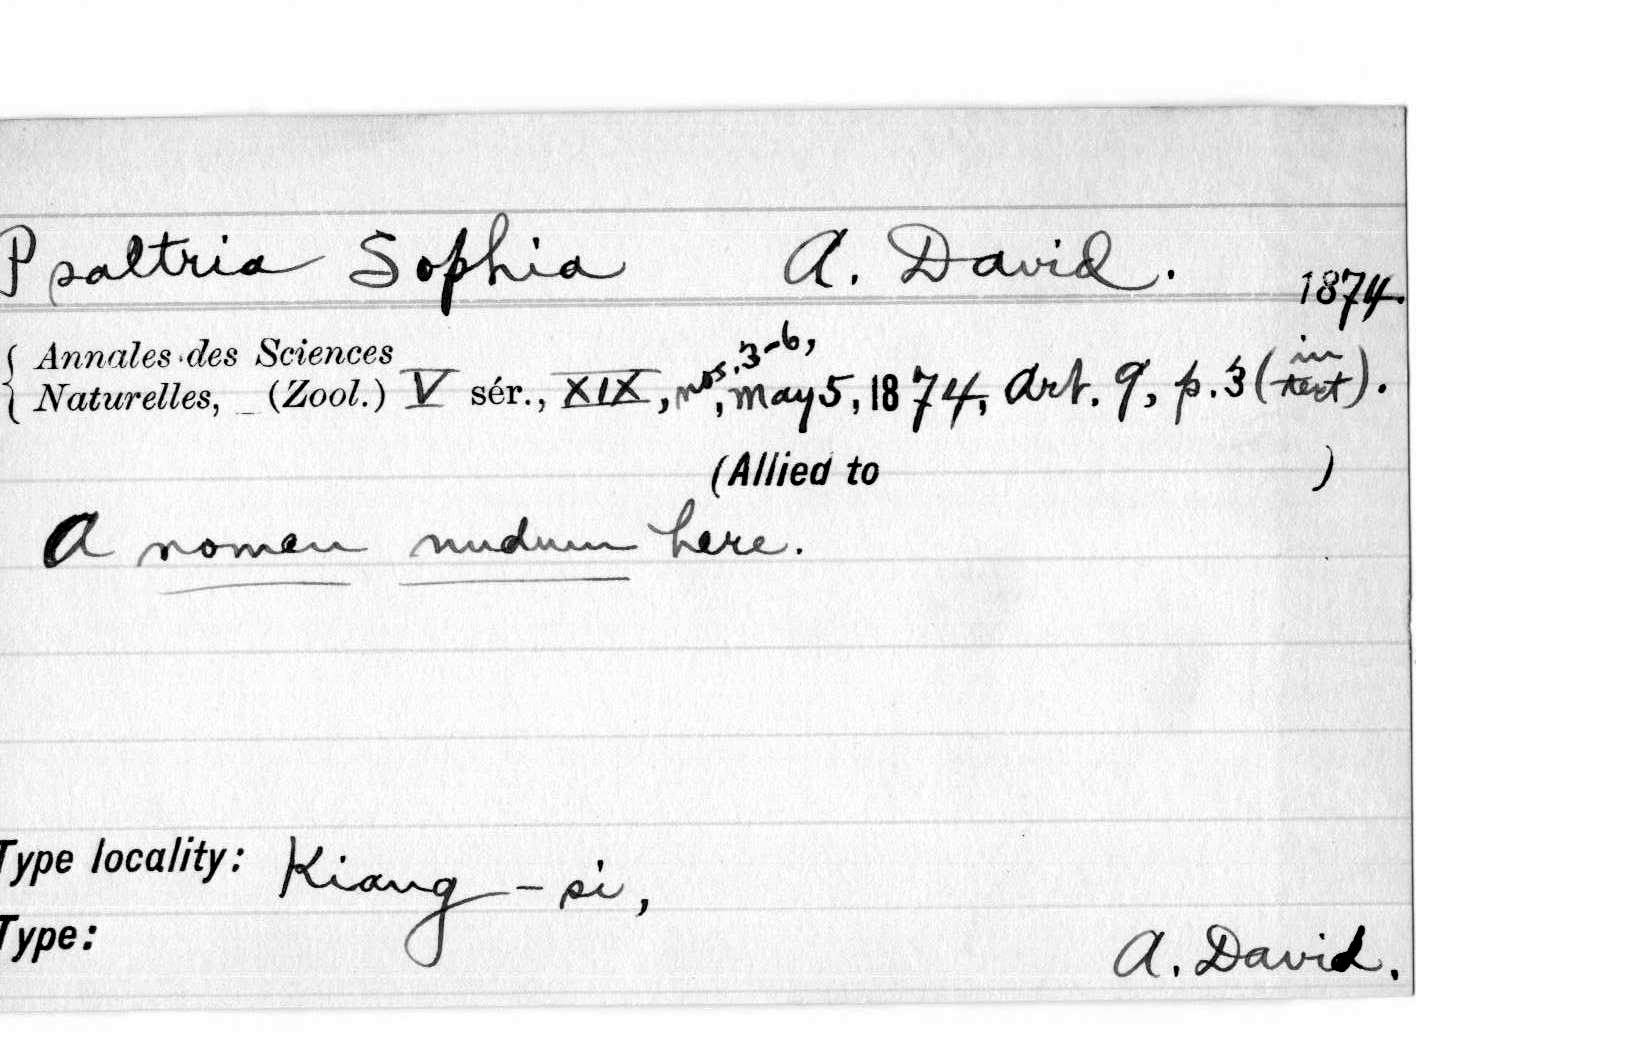 Psaltria Sophia A. David.
1874.
Annales des Sciences
Naturelles, (Zool.) V sér., XIX, nos. 3-6, May 5, 1874, Art. 9, p. 3 (in text).
(Allied to )
A nomen nudum here.
Type locality: Kiang-si,
Type:
A. David.